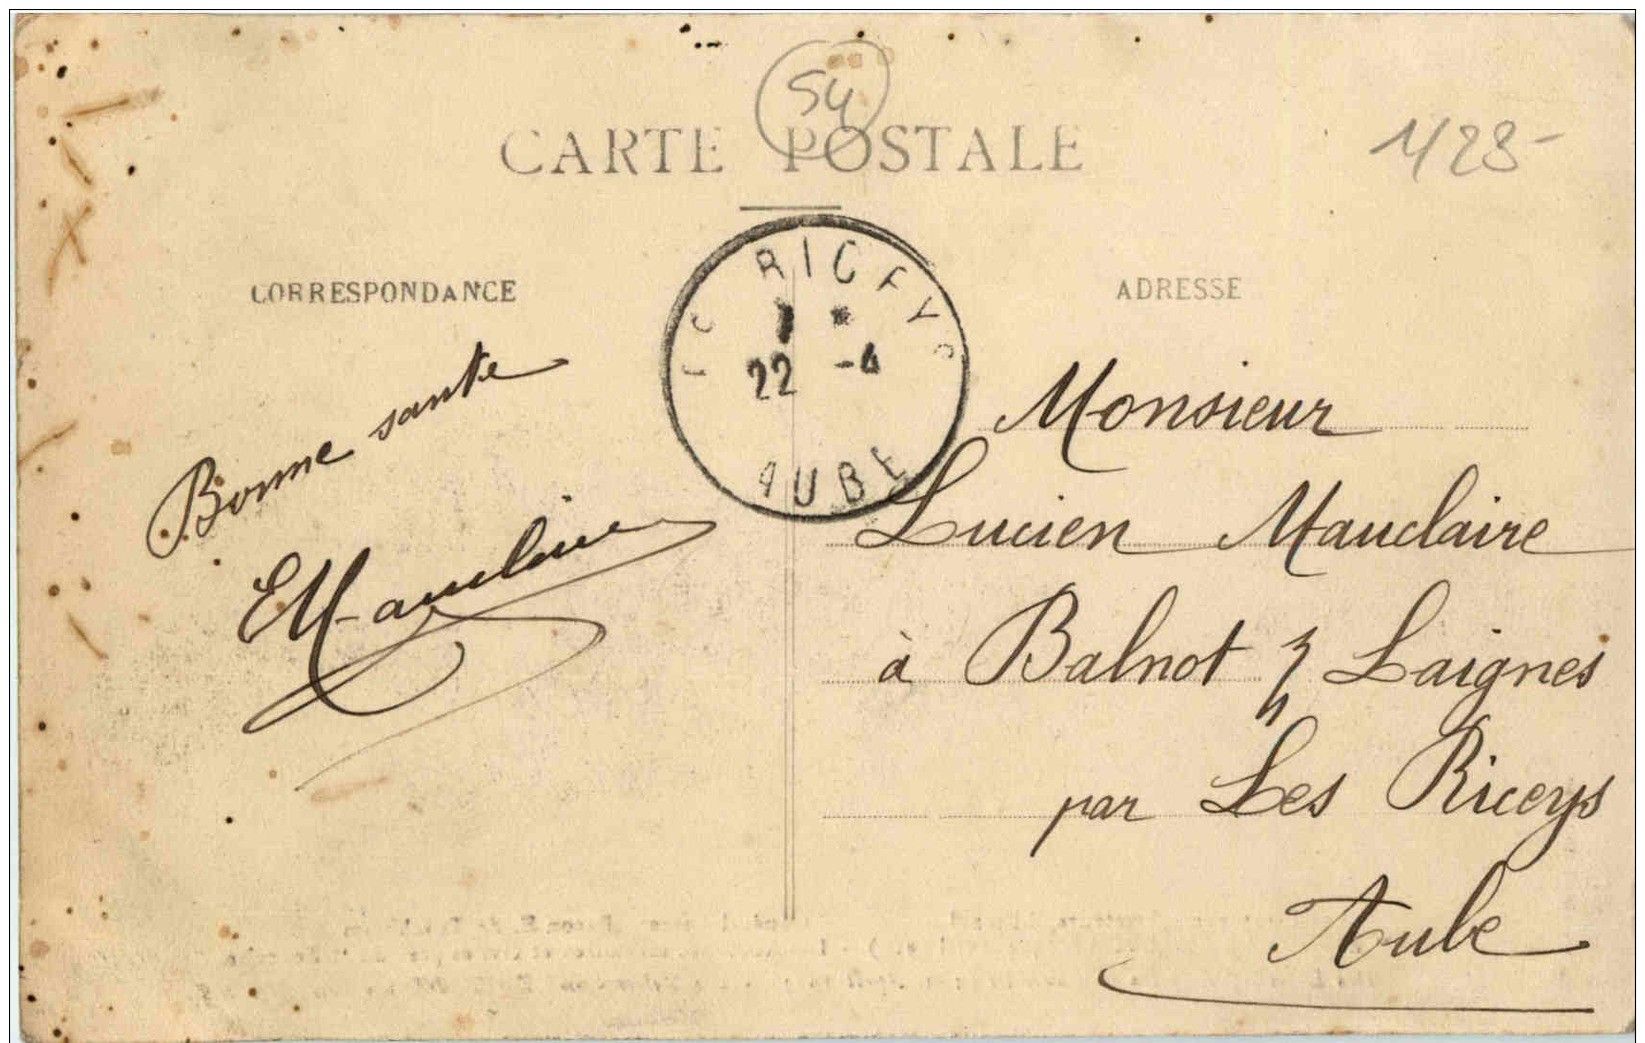 54
CARTE POSTALE
1/28-
CORRESPONDANCE
ADRESSE
RICEYS
22 -4
AUBE
Bonne sante
EMauclaire
Monsieur
Lucien Mauclaire
à Balnot s/ Laignes
par Les Riceys
Aube